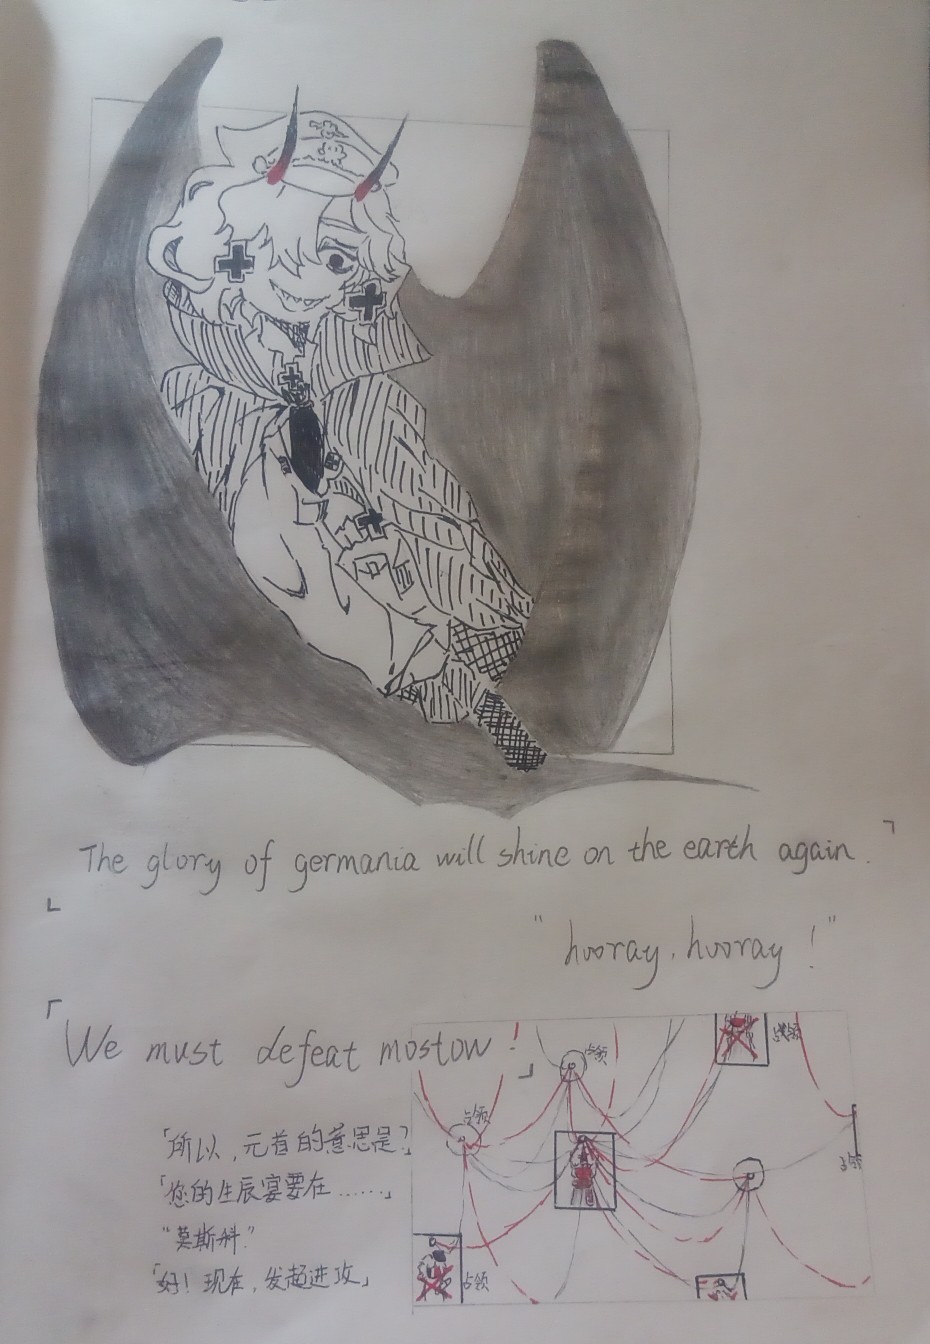 The glory of germania will shine on the earth again.」
「
"hooray, hooray!"
「We must defeat mostow.」
占领
占领
占领
占领
占领
「所以,元首的意思是?」
「您的生辰宴要在……」
"莫斯科."
「好!现在,发起进攻」